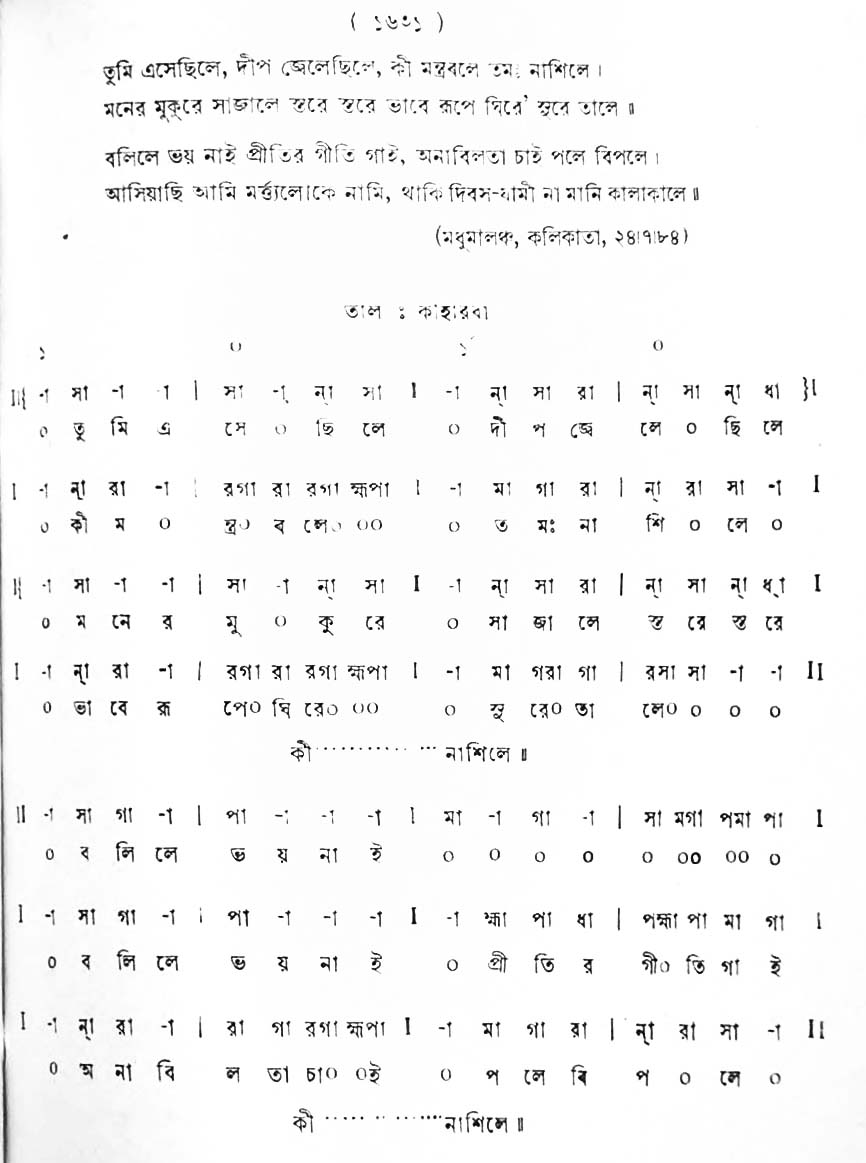 ( ১৬৩১ )
তুমি এসেছিলে, দীপ জ্বেলেছিলে, কী মন্ত্রবলে তমঃ নাশিলে ।
মনের মুকুরে সাজালে স্তরে স্তরে ভাবে রূপে ঘিরে' সুরে তালে ॥
বলিলে ভয় নাই প্রীতির গীতি গাই, অনাবিলতা চাই পলে বিপলে ।
আসিয়াছি আমি মর্ত্ত্যলোকে নামি, থাকি দিবস-যামী না মানি কালাকালে ॥
(মধুমালঞ্চ, কলিকাতা, ২৪।৭।৮৪)
তাল : কাহারবা
১ ০ ১ ০
II{ -া সা -া -া | সা -া ন্া সা I -া ন্া সা রা | ন্া সা ন্া ধা }I
০ তু মি এ সে ০ ছি লে ০ দী প জ্বে লে ০ ছি লে
I -া ন্া রা -া | রগা রা রগা হ্মপা I -া মা গা রা | ন্া রা সা -া I
০ কী ম ০ ন্ত্র০ ব লে০ ০০ ০ ত মঃ না শি ০ লে ০
II -া সা -া -া | সা -া ন্া সা I -া ন্া সা রা | ন্া সা ন্া ধ্া I
০ ম নে র মু ০ কু রে ০ সা জা লে স্ত রে স্ত রে
I -া ন্া রা -া | রগা রা রগা হ্মপা I -া মা গরা গা | রসা সা -া -া II
০ ভা বে রূ পে০ ঘি রে০ ০০ ০ সু রে০ তা লে০ ০ ০ ০
কী ............... নাশিলে ॥
II -া সা গা -া | পা -া -া -া I মা -া গা -া | সা মগা পমা পা I
০ ব লি লে ভ য় না ই ০ ০ ০ ০ ০ ০০ ০০ ০
I -া সা গা -া | পা -া -া -া I -া হ্মা পা ধা | পহ্মা পা মা গা I
০ ব লি লে ভ য় না ই ০ প্রী তি র গী০ তি গা ই
I -া ন্া রা -া | রা গা রগা হ্মপা I -া মা গা রা | ন্া রা সা -া II
০ অ না বি ল তা চা০ ০ই ০ প লে বি প ০ লে ০
কী ............... নাশিলে ॥